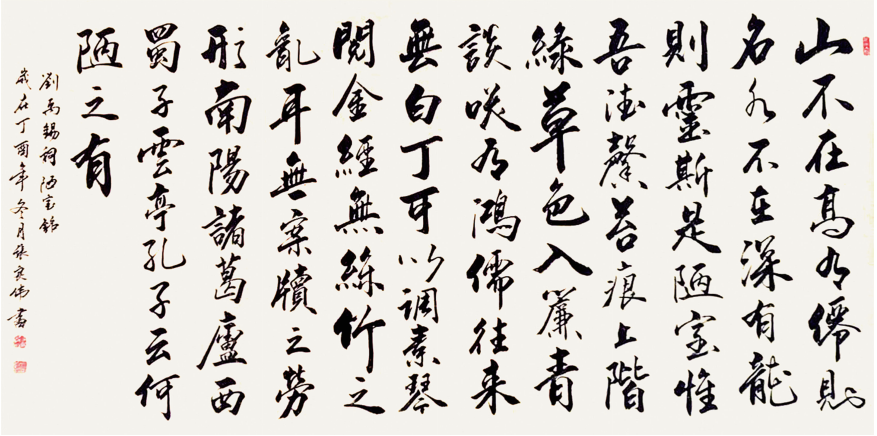 山不在高有僊則
名水不在深有龍
則靈斯是陋室惟
吾德馨苔痕上階
綠草色入簾青
談咲有鴻儒往来
無白丁可以調素琴
閱金經無絲竹之
亂耳無案牘之勞
形南陽諸葛廬西
蜀子雲亭孔子云何
陋之有
劉禹錫詞陋室銘
歲在丁酉年冬月張書